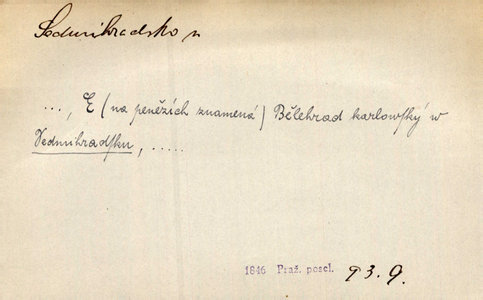 Sedmihradsko n
..., E (na penězích znamená) Bělehrad karlowſký w
Sedmihradſku, .....
1846 Praž. posel. 93.9.